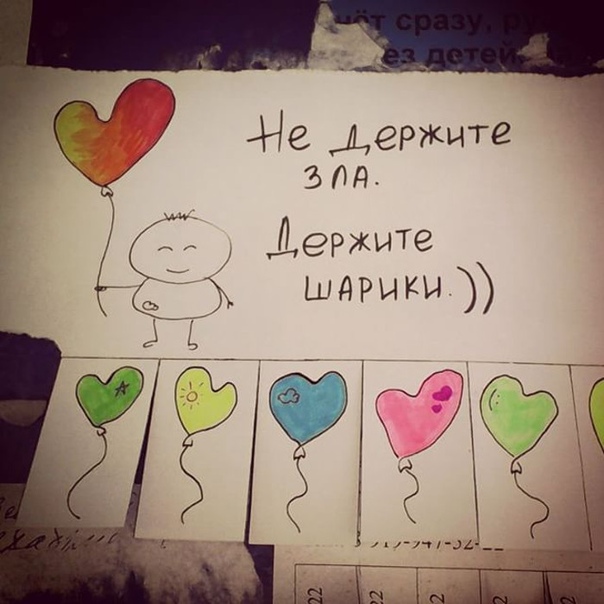 чёт сразу, ру
ез детей.
Не держите
зла.
Держите
шарики.))
22
22
22
22
22